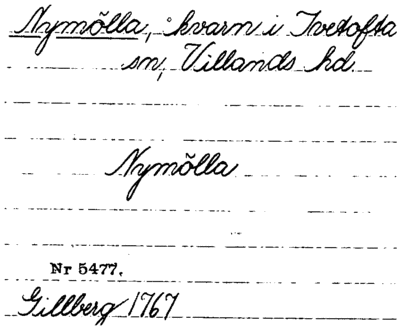 Nymõlla, kvarn i Ivetofta
sn, Villands hd.
Nymõlla
Nr 5477.
Gillberg 1767